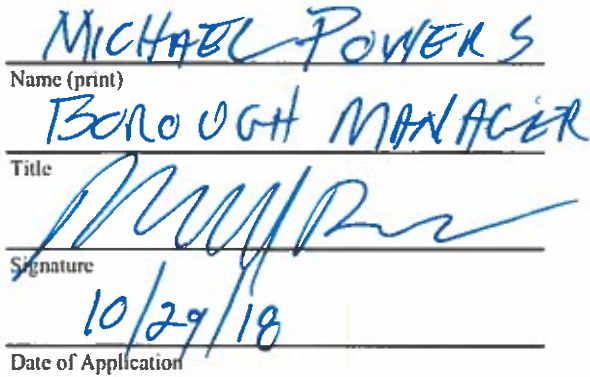 MICHAEL POWERS
Name (print)
BOROUGH MANAGER
Title
Signature
10/29/18
Date of Application